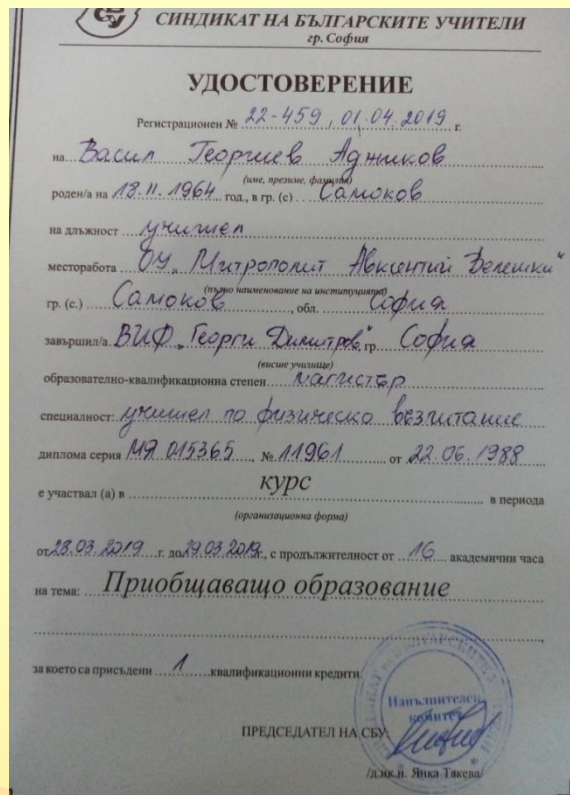 СИНДИКАТ НА БЪЛГАРСКИТЕ УЧИТЕЛИ
гр. София
УДОСТОВЕРЕНИЕ
Регистрационен № 22-459, 01.04.2019 г.
на Васил Георгиев Аджиков
(име, презиме, фамилия)
роден/а на 18.11.1964 год., в гр. (с) Самоков
на длъжност учител
месторабота ОУ "Митрополит Авксентий Велешки"
(пълно наименование на институцията)
гр. (с.) Самоков, обл. София
завършил/а ВИФ "Георги Димитров" гр. София
(висше училище)
образователно-квалификационна степен магистър
специалност: учител по физическо възпитание
диплома серия МЯ 015365, № 11961 от 22.06.1988
е участвал (а) в курс в периода
(организационна форма)
от 28.03.2019 г. до 29.03.2019г., с продължителност от 16 академични часа
на тема: Приобщаващо образование
за което са присъдени 1 квалификационни кредити.
Изпълнителен
комитет
ПРЕДСЕДАТЕЛ НА СБУ:
/д.ик.н. Янка Такева/